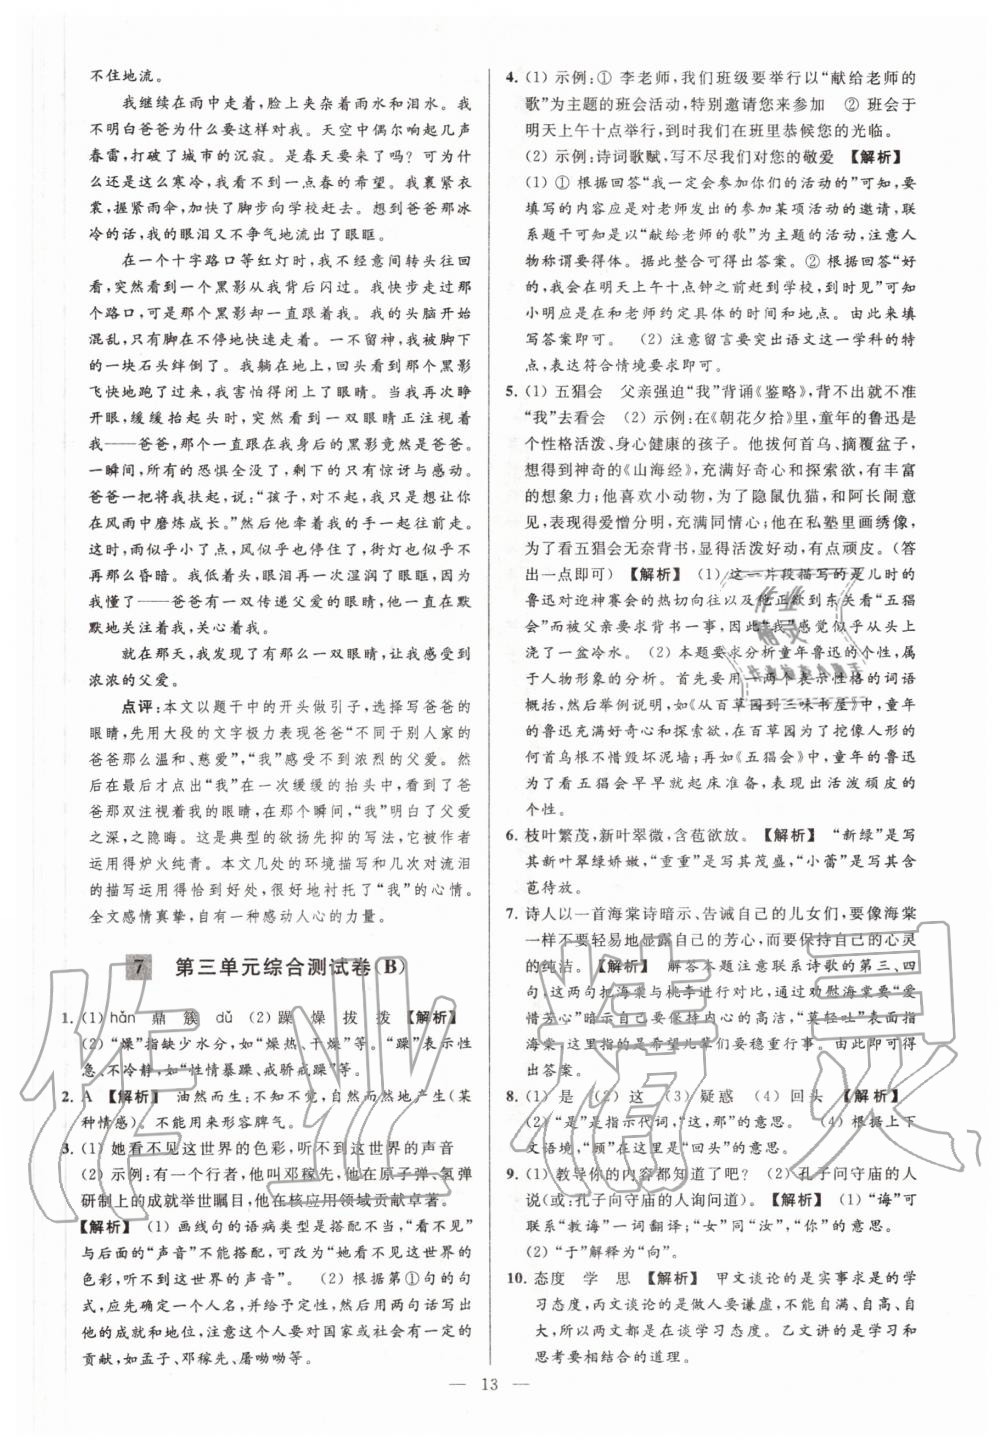 不住地流。
我继续在雨中走着，脸上夹杂着雨水和泪水。我
不明白爸爸为什么要这样对我。天空中偶尔响起几声
春雷，打破了城市的沉寂。是春天要来了吗？可为什
么还是这么寒冷，我看不到一点春的希望。我裹紧衣
裳，握紧雨伞，加快了脚步向学校赶去。想到爸爸那冰
冷的话，我的眼泪又不争气地流出了眼眶。
在一个十字路口等红灯时，我不经意间转头往回
看，突然看到一个黑影从我背后闪过。我快步走过那
个路口，可是那个黑影却一直跟着我。我的头脑开始
混乱，只有双脚在不停地快速走着。一不留神，我被脚下
的一块石头绊倒了。我躺在地上，回头看到那个黑影
飞快地跑了过来，我害怕得闭上了眼睛。当我再次睁
开眼，缓缓抬起头时，突然看到一双眼睛正注视着
我——爸爸，那个一直跟在我身后的黑影竟然是爸爸。
一瞬间，所有的恐惧全没了，剩下的只有惊讶与感动。
爸爸一把将我扶起，说：“孩子，对不起，我只是想让你
在风雨中磨炼成长。”然后他牵着我的手一起往前走。
这时，雨似乎小了点，风似乎也停住了，街灯也似乎不
再那么昏暗。我低着头，眼泪再一次湿润了眼眶，因为
我懂了——爸爸有一双传递父爱的眼睛，他一直在默
默地关注着我，关心着我。
就在那天，我发现了有那么一双眼睛，让我感受到
浓浓的父爱。
点评：本文以题干中的开头做引子，选择写爸爸的
眼睛，先用大段的文字极力表现爸爸“不同于别人家的
爸爸那么温和、慈爱”，“我”感受不到浓烈的父爱。然
后在最后才点出“我”在一次缓缓的抬头中，看到了爸
爸那双注视着我的眼睛，在那个瞬间，“我”明白了父爱
之深，之隐晦。这是典型的欲扬先抑的写法，它被作者
运用得炉火纯青。本文几处的环境描写和几次对流泪
的描写运用得恰到好处，很好地衬托了“我”的心情。
全文感情真挚，自有一种感动人心的力量。
7 第三单元综合测试卷（B）
1. (1) hǎn 鼎 簇 dǔ (2) 躁 燥 拔 拨 【解析】
(2)“燥”指缺少水分，如“燥热、干燥”等。“躁”表示性
急、不冷静，如“性情暴躁、戒骄戒躁”等。
2. A 【解析】 油然而生：不知不觉，自然而然地产生（某
种情感）。不能用来形容脾气。
3. (1) 她看不见这世界的色彩，听不到这世界的声音
(2) 示例：有一个行者，他叫邓稼先，他在原子弹、氢弹
研制上的成就举世瞩目，他在核应用领域贡献卓著。
【解析】 (1) 画线句的语病类型是搭配不当，“看不见”
与后面的“声音”不能搭配，可改为“她看不见这世界的
色彩，听不到这世界的声音”。 (2) 根据第①句的句
式，应先确定一个人名，并给予定性，然后用两句话写出
他的成就和地位，注意这个人要对国家或社会有一定的
贡献，如孟子、邓稼先、屠呦呦等。
4. (1) 示例：① 李老师，我们班级要举行以“献给老师的
歌”为主题的班会活动，特别邀请您来参加 ② 班会于
明天上午十点举行，到时我们在班里恭候您的光临。
(2) 示例：诗词歌赋，写不尽我们对您的敬爱 【解析】
(1) ① 根据回答“我一定会参加你们的活动的”可知，要
填写的内容应是对老师发出的参加某项活动的邀请，联
系题干可知是以“献给老师的歌”为主题的活动，注意人
物称谓要得体。据此整合可得出答案。② 根据回答“好
的，我会在明天上午十点钟之前赶到学校，到时见”可知
小明应是在和老师约定具体的时间和地点。由此来填
写答案即可。 (2) 注意留言要突出语文这一学科的特
点，表达符合情境要求即可。
5. (1) 五猖会 父亲强迫“我”背诵《鉴略》，背不出就不准
“我”去看会 (2) 示例：在《朝花夕拾》里，童年的鲁迅是
个性格活泼、身心健康的孩子。他拔何首乌、摘覆盆子，
想得到神奇的《山海经》，充满好奇心和探索欲，有丰富
的想象力；他喜欢小动物，为了隐鼠仇猫，和阿长闹意
见，表现得爱憎分明，充满同情心；他在私塾里画绣像，
为了看五猖会无奈背书，显得活泼好动，有点顽皮。（答
出一点即可）【解析】 (1) 这一片段描写的是儿时的
鲁迅对迎神赛会的热切向往以及他正欲到东关看“五猖
会”而被父亲要求背书一事，因此“我”感觉似乎从头上
浇了一盆冷水。 (2) 本题要求分析童年鲁迅的个性，
属于人物形象的分析。首先要用一两个表示性格的词语
概括，然后举例说明，如《从百草园到三味书屋》中，童年
的鲁迅充满好奇心和探索欲，在百草园为了挖像人形的
何首乌根不惜毁坏泥墙；再如《五猖会》中，童年的鲁迅
为了看五猖会早早就起床准备，表现出活泼顽皮的
个性。
6. 枝叶繁茂，新叶翠微，含苞欲放。 【解析】 “新绿”是写
其新叶翠绿娇嫩，“重重”是写其茂盛，“小蕾”是写其含
苞待放。
7. 诗人以一首海棠诗暗示、告诫自己的儿女们，要像海棠
一样不要轻易地显露自己的芳心，而要保持自己的心灵
的纯洁。【解析】 解答本题注意联系诗歌的第三、四
句，这两句把海棠与桃李进行对比，通过劝慰海棠要“爱
惜芳心”暗示自己要保持内心的高洁，“莫轻吐”表面指
海棠，实际上是希望儿辈们要稳重行事。由此即可得出
出答案。
8. (1) 是 (2) 这 (3) 疑惑 (4) 回头 【解析】
(2)“是”是指示代词，“这，那”的意思。 (4) 根据上下
文语境，“顾”在这里是“回头”的意思。
9. (1) 教导你的内容都知道了吧？ (2) 孔子问守庙的人
说（或：孔子向守庙的人询问道）。 【解析】 (1)“诲”可
联系“教诲”一词翻译；“女”同“汝”，“你”的意思。
(2)“于”解释为“向”。
10. 态度 学 思 【解析】 甲文谈论的是实事求是的学
习态度，丙文谈论的是做人要谦虚，不能自满、自高、自
大，所以两文都是在谈学习态度。乙文讲的是学习和
思考要相结合的道理。
— 13 —
作业精灵